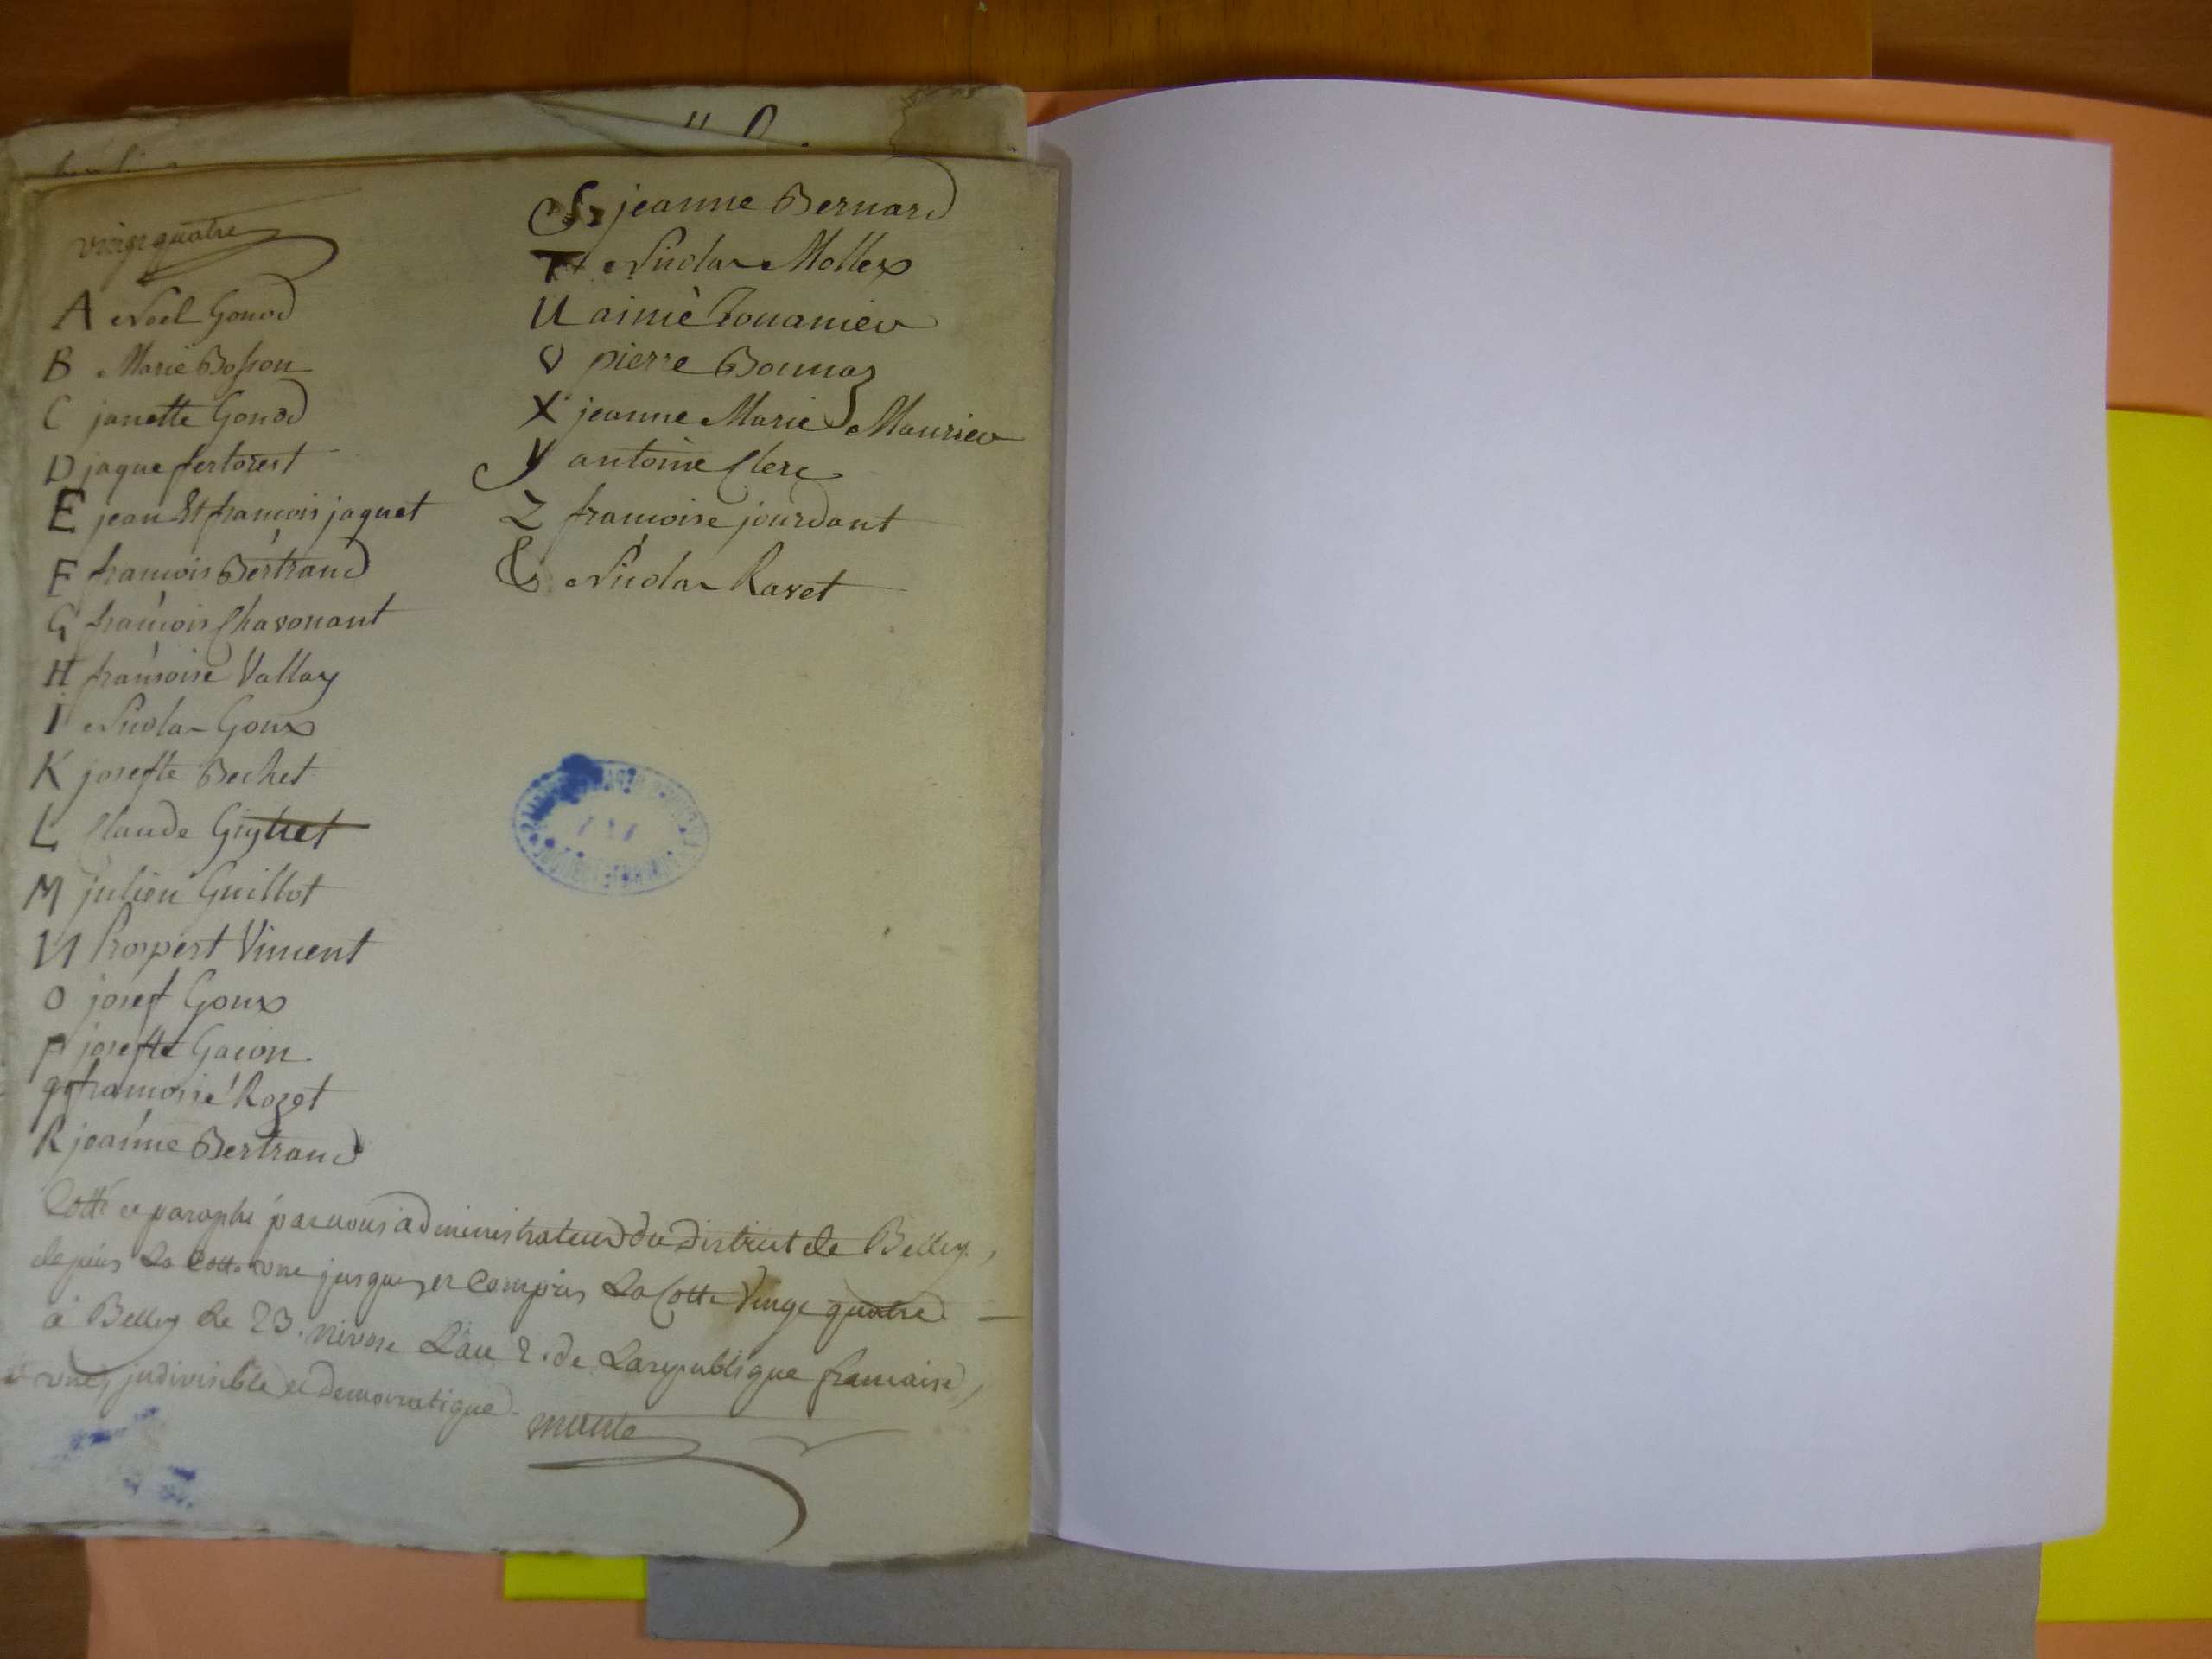 vingt quatre
A Noel Gonod
B Marie Bosson
C janette Gonod
D jaque fertorest
E jean Bt francois jaquet
F francois Bertrand
G francois Chavonant
H fransoise Vallay
I Nicolas Goux
K josefte Bechet
L Claude
M julien Guillot
N Prospert Vincent
O josef Goux
P josefte Gacon
q francoise Rozet
R jeanne Bertrand
S jeanne Bernard
T Nicolas Mollex
U aimé
V pierre Bonnaz
X jeanne Marie Maurier
y antoine Clerc
Z francoise jourdant
& Nicolas Ravet
Cotté et paraphé par nous administrateur du District de Belley,
depuis La Cotte une jusques et compris La Cotte Vingt quatre
à Belley le 23. nivose L'an 2. de La republique francaise,
une, indivisible et democratique